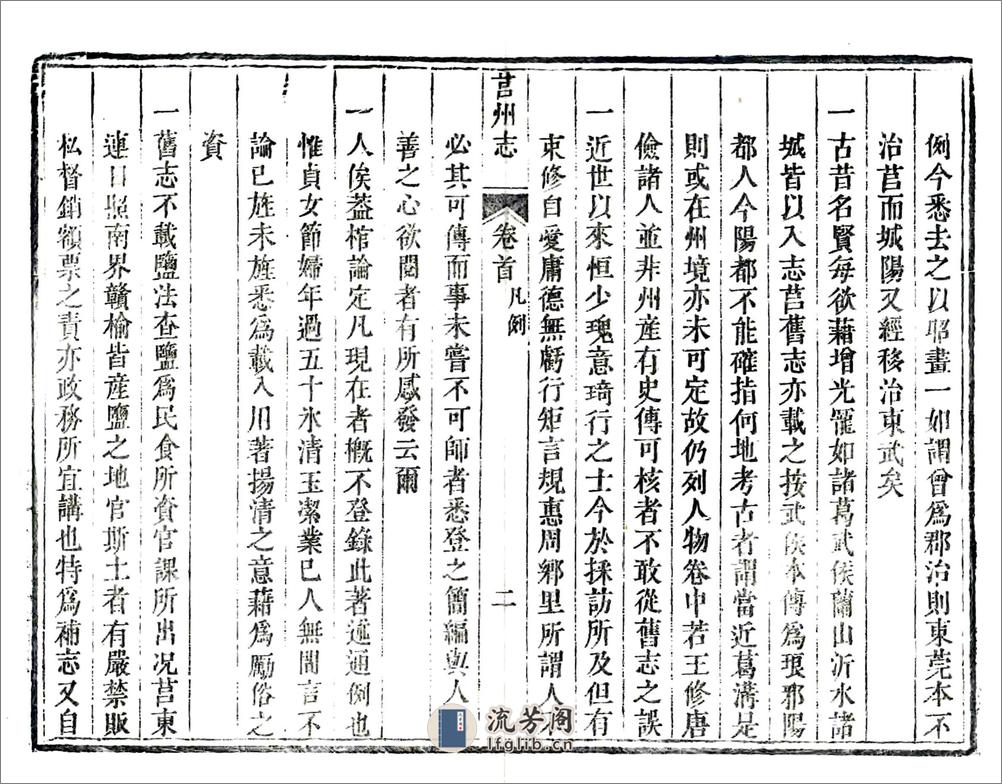 例今悉去之以昭畫一如謂曾爲郡治則東莞本不
治莒而城陽又經移治東武矣
一古昔名賢每欲藉增光寵如諸葛武侯蘭山沂水諸
城皆以入志莒舊志亦載之按武侯本傳爲琅邪陽
都人今陽都不能確指何地考古者謂當近葛溝是
則或在州境亦未可定故仍列人物卷中若王修唐
儉諸人並非州産有史傳可核者不敢從舊志之誤
一近世以來恒少瑰意琦行之士今於採訪所及但有
束修自愛庸德無虧行矩言規惠周鄉里所謂人
莒州志 卷首 凡例 二
必其可傳而事未嘗不可師者悉登之簡編與人
善之心欲閱者有所感發云爾
一人俟蓋棺論定凡現在者概不登錄此著述通例也
惟貞女節婦年過五十氷清玉潔業已人無閒言不
論已旌未旌悉爲載入用著揚清之意藉爲勵俗之
資
一舊志不載鹽法查鹽爲民食所資官課所出况莒東
連日照南界贛榆皆産鹽之地官斯土者有嚴禁販
私督銷額票之責亦政務所宜講也特爲補志又自
流芳阁
lfglib.cn